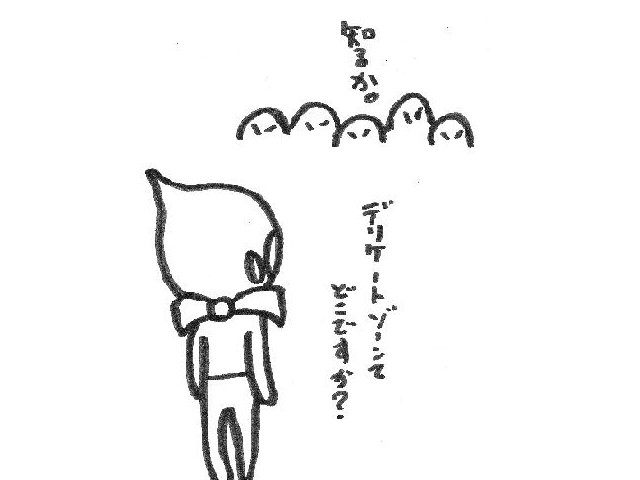 知るか。
デリケートゾーンて
どこですか?